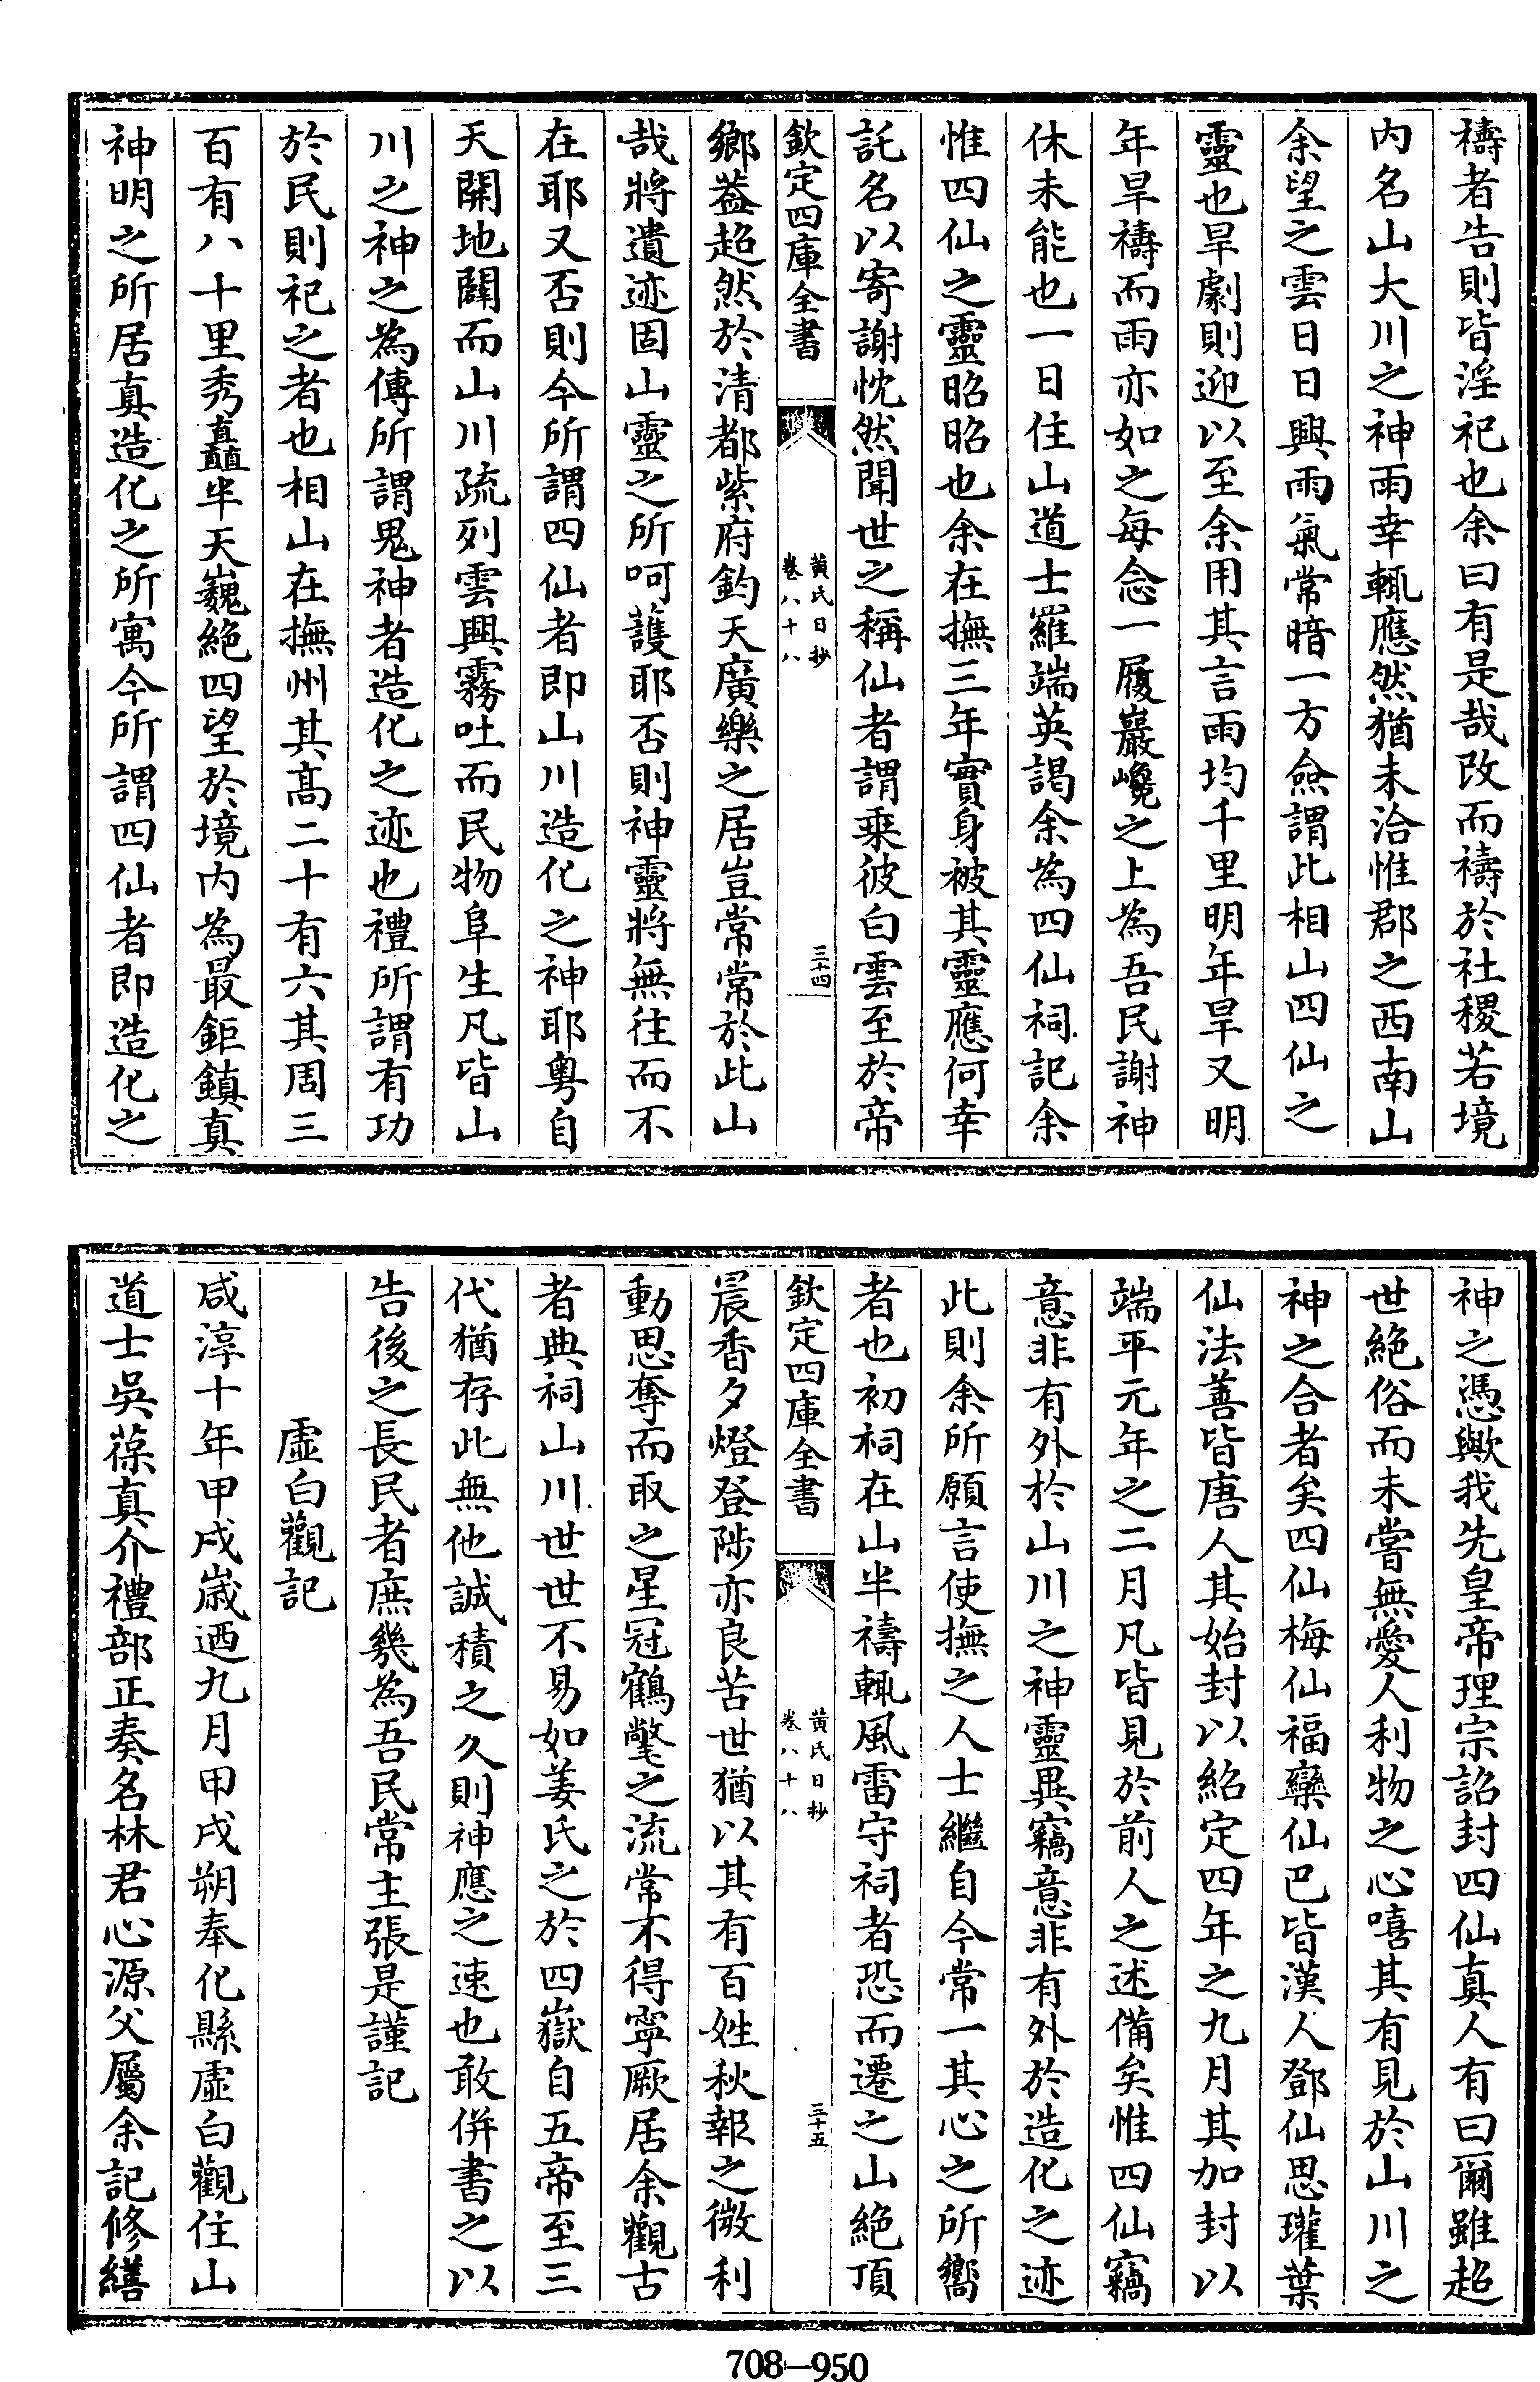 禱者告則皆淫祀也余曰有是哉改而禱於社稷若境
内名山大川之神雨幸輒應然猶未洽惟郡之西南山
余望之雲日日興雨氣常暗一方僉謂此相山四仙之
靈也旱劇則迎以至余用其言雨均千里明年旱又明
年旱禱而雨亦如之每念一履巖巉之上為吾民謝神
休未能也一日住山道士羅端英謁余為四仙祠記余
惟四仙之靈昭昭也余在撫三年實身被其靈應何幸
託名以寄謝忱然聞世之稱仙者謂乘彼白雲至於帝
欽定四庫全書
黄氏日抄
卷八十八
三十四
鄉葢超然於清都紫府鈞天廣樂之居豈常常於此山
哉將遺迹固山靈之所呵護耶否則神靈將無往而不
在耶又否則今所謂四仙者即山川造化之神耶粵自
天開地闢而山川疏列雲興霧吐而民物阜生凡皆山
川之神之為傳所謂鬼神者造化之迹也禮所謂有功
於民則祀之者也相山在撫州其髙二十有六其周三
百有八十里秀矗半天巍絶四望於境内為最鉅鎮真
神明之所居真造化之所寓今所謂四仙者即造化之
神之憑歟我先皇帝理宗詔封四仙真人有曰爾雖超
世絶俗而未嘗無愛人利物之心嘻其有見於山川之
神之合者矣四仙梅仙福欒仙巴皆漢人鄧仙思瓘葉
仙法善皆唐人其始封以紹定四年之九月其加封以
端平元年之二月凡皆見於前人之述備矣惟四仙竊
意非有外於山川之神靈異竊意非有外於造化之迹
此則余所願言使撫之人士繼自今常一其心之所嚮
者也初祠在山半禱輒風雷守祠者恐而遷之山絶頂
欽定四庫全書
黄氏日抄
卷八十八
三十五
晨香夕燈登陟亦良苦世猶以其有百姓秋報之微利
動思奪而取之星冠鶴氅之流常不得寧厥居余觀古
者典祠山川世世不易如姜氏之於四嶽自五帝至三
代猶存此無他誠積之久則神應之速也敢併書之以
告後之長民者庶幾為吾民常主張是謹記
虚白觀記
咸淳十年甲戌嵗迺九月甲戌朔奉化縣虚白觀住山
道士吳葆真介禮部正奏名林君心源父屬余記修繕
708—950